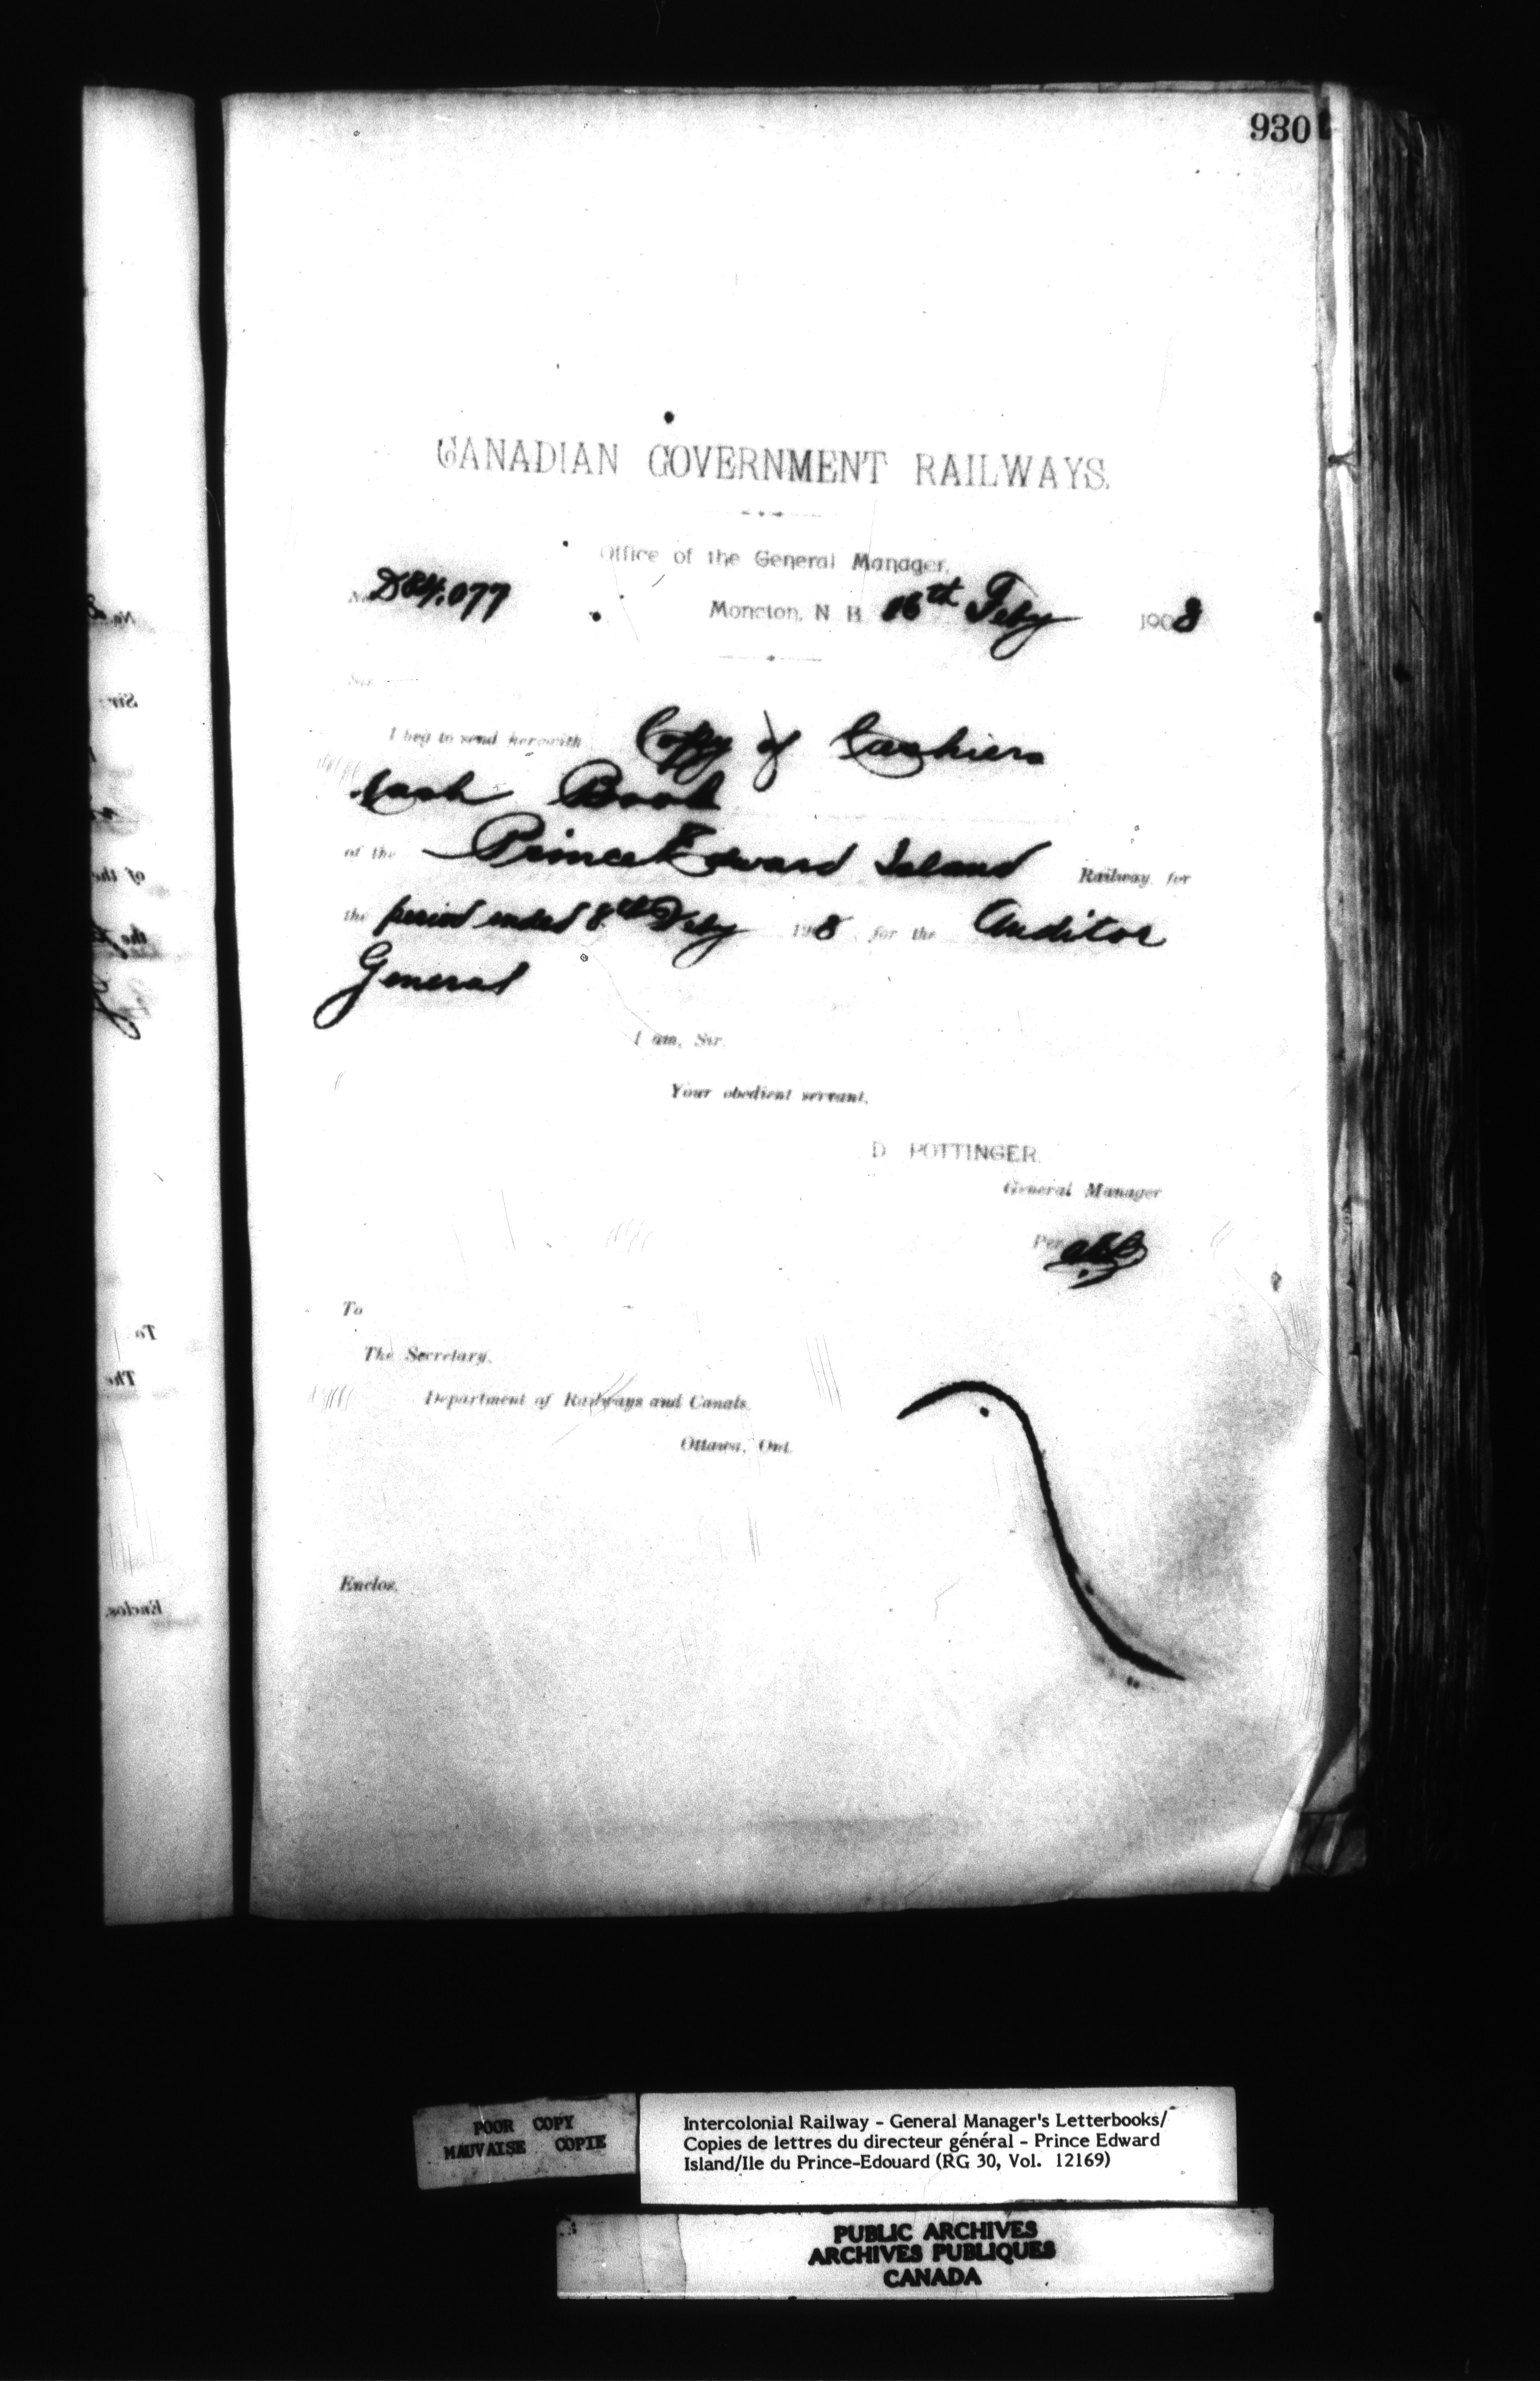 930
CANADIAN GOVERNMENT RAILWAYS.
Office of the General Manager,
No. D84,077
Moncton, N. B. 16th Feby 1908
Sir
I beg to send herewith Copy of Cashiers
Cash Book
of the Prince Edward Island Railway for
the period ended 8th Feby 1908 for the Auditor
General
I am, Sir,
Your obedient servant,
D. POTTINGER.
General Manager
Per
To
The Secretary,
Department of Railways and Canals,
Ottawa, Ont.
Enclos.
POOR COPY
MAUVAISE COPIE
Intercolonial Railway - General Manager's Letterbooks/
Copies de lettres du directeur général - Prince Edward
Island/Ile du Prince-Edouard (RG 30, Vol. 12169)
PUBLIC ARCHIVES
ARCHIVES PUBLIQUES
CANADA